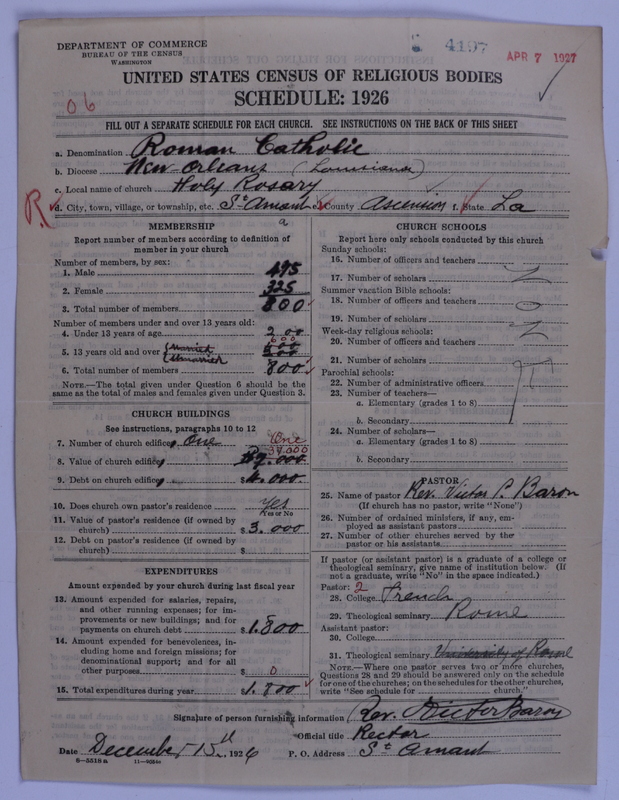 DEPARTMENT OF COMMERCE
BUREAU OF THE CENSUS
WASHINGTON
4197
APR 7 1927
UNITED STATES CENSUS OF RELIGIOUS BODIES
SCHEDULE: 1926
06
FILL OUT A SEPARATE SCHEDULE FOR EACH CHURCH. SEE INSTRUCTIONS ON THE BACK OF THIS SHEET
a. Denomination Roman Catholic
b. Diocese New-Orleans (Louisiana)
c. Local name of church Holy Rosary
R. d. City, town, village, or township, etc. St Amant e. County Ascension f. State La
MEMBERSHIP
Report number of members according to definition of member in your church
Number of members, by sex:
1. Male 495
2. Female 325
3. Total number of members 800
Number of members under and over 13 years old:
4. Under 13 years of age 200
5. 13 years old and over Married Unmarried 600
6. Total number of members 800
NOTE.—The total given under Question 6 should be the
same as the total of males and females given under Question 3.
CHURCH BUILDINGS
See instructions, paragraphs 10 to 12
7. Number of church edifices One One
8. Value of church edifices
9. Debt on church edifices
10. Does church own pastor's residence Yes
Yes or No
11. Value of pastor's residence (if owned by
church) $3.000
12. Debt on pastor's residence (if owned by
church) $
EXPENDITURES
Amount expended by your church during last fiscal year
13. Amount expended for salaries, repairs,
and other running expenses; for im-
provements or new buildings; and for
payments on church debt $1.800
14. Amount expended for benevolences, in-
cluding home and foreign missions; for
denominational support; and for all
other purposes $0
15. Total expenditures during year $1.800
CHURCH SCHOOLS
Report here only schools conducted by this church
Sunday schools:
16. Number of officers and teachers
17. Number of scholars
Summer vacation Bible schools:
18. Number of officers and teachers
19. Number of scholars
Week-day religious schools:
20. Number of officers and teachers
21. Number of scholars
Parochial schools:
22. Number of administrative officers
23. Number of teachers—
a. Elementary (grades 1 to 8)
b. Secondary
24. Number of scholars—
a. Elementary (grades 1 to 8)
b. Secondary
PASTOR
25. Name of pastor Rev. Victor P. Baron
(If church has no pastor, write "None")
26. Number of ordained ministers, if any, em-
ployed as assistant pastors
27. Number of other churches served by the
pastor or his assistants
If pastor (or assistant pastor) is a graduate of a college or
theological seminary, give name of institution below. (If
not a graduate, write "No" in the space indicated.)
Pastor: 2
28. College French
29. Theological seminary Rome
Assistant pastor:
30. College
31. Theological seminary University of Rome
NOTE.—Where one pastor serves two or more churches,
Questions 28 and 29 should be answered only on the schedule
for one of the churches; on the schedules for the other churches,
write "See schedule for church."
Signature of person furnishing information Rev. Victor Baron
Official title Rector
Date December 15th, 1926 P. O. Address St Amant
8—5518a 11—9584